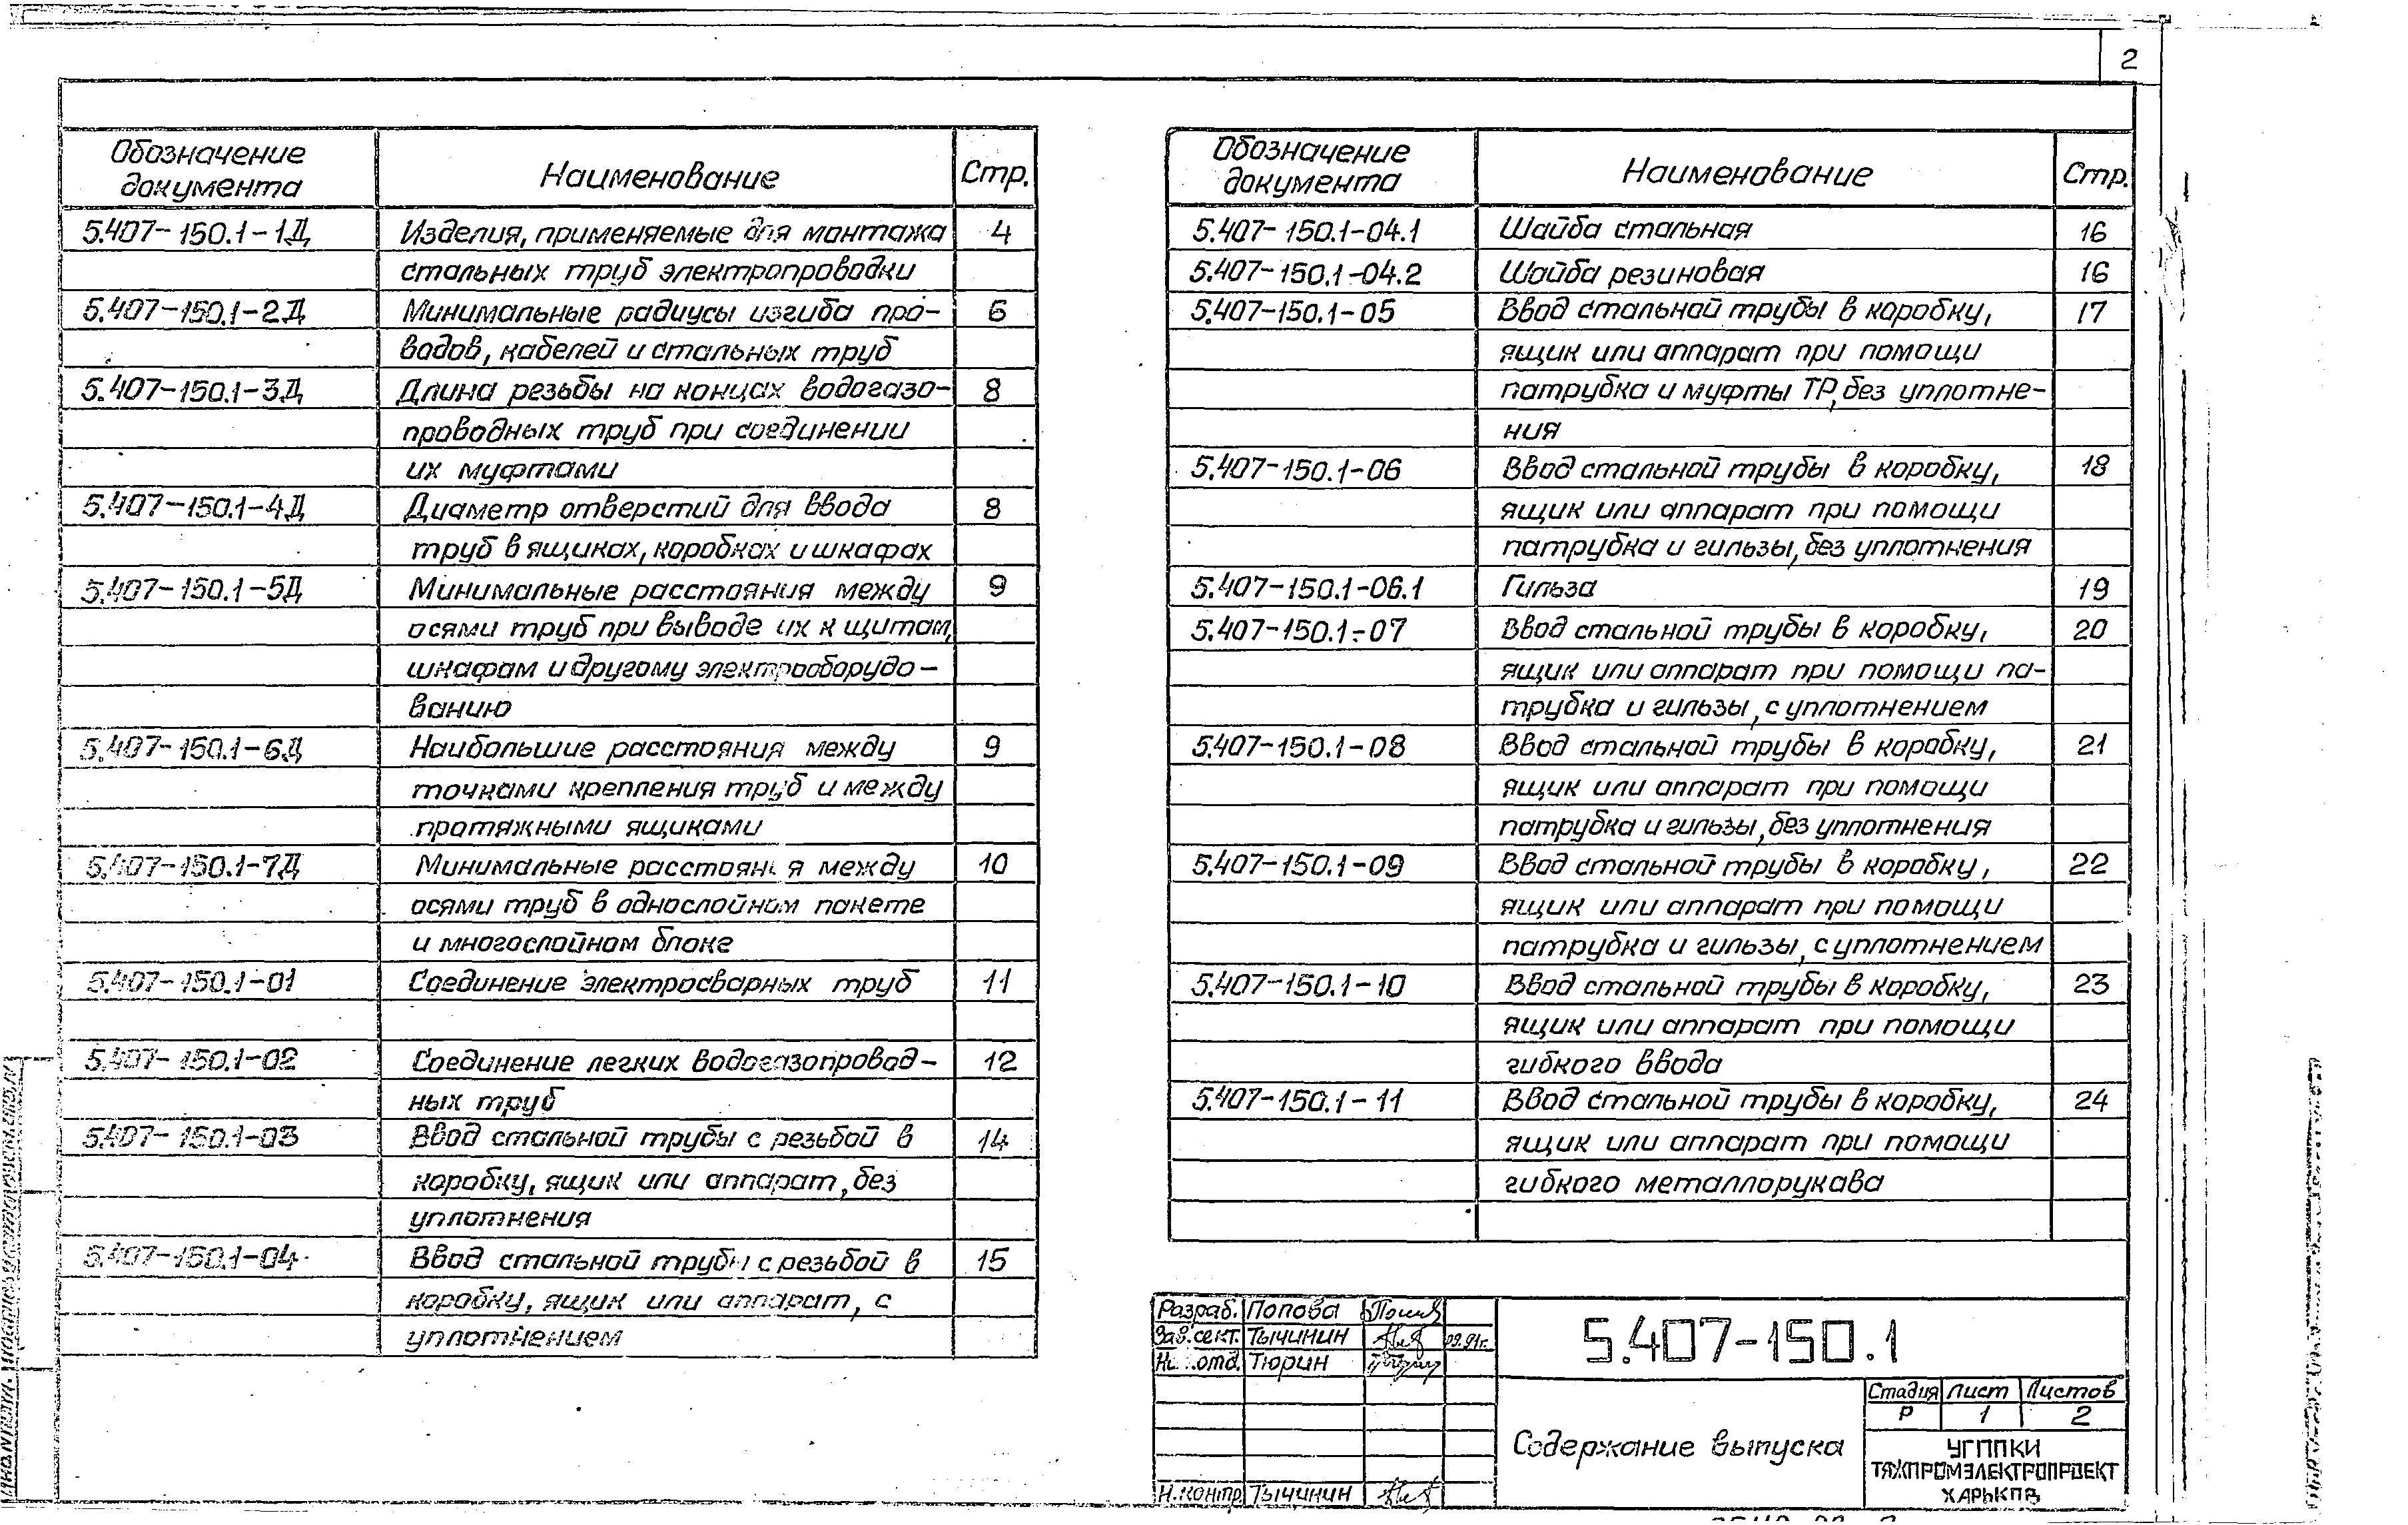 2
Обозначение документа Наименование Стр.
5.407-150.1-1Д Изделия, применяемые для монтажа 4
стальных труб электропроводки
5.407-150.1-2Д Минимальные радиусы изгиба про- 6
водов, кабелей и стальных труб
5.407-150.1-3Д Длина резьбы на концах водогазо- 8
проводных труб при соединении
их муфтами
5.407-150.1-4Д Диаметр отверстий для ввода 8
труб в ящиках, коробках и шкафах
5.407-150.1-5Д Минимальные расстояния между 9
осями труб при выводе их к щитам,
шкафам и другому электрооборудо-
ванию
5.407-150.1-6Д Наибольшие расстояния между 9
точками крепления труб и между
протяжными ящиками
5.407-150.1-7Д Минимальные расстояния между 10
осями труб в однослойном пакете
и многослойном блоке
5.407-150.1-01 Соединение электросварных труб 11
5.407-150.1-02 Соединение легких водогазопровод- 12
ных труб
5.407-150.1-03 Ввод стальной трубы с резьбой в 14
коробку, ящик или аппарат, без
уплотнения
5.407-150.1-04 Ввод стальной трубы с резьбой в 15
коробку, ящик или аппарат, с
уплотнением
Обозначение документа Наименование Стр.
5.407-150.1-04.1 Шайба стальная 16
5.407-150.1-04.2 Шайба резиновая 16
5.407-150.1-05 Ввод стальной трубы в коробку, 17
ящик или аппарат при помощи
патрубка и муфты ТР, без уплотне-
ния
5.407-150.1-06 Ввод стальной трубы в коробку, 18
ящик или аппарат при помощи
патрубка и гильзы, без уплотнения
5.407-150.1-06.1 Гильза 19
5.407-150.1-07 Ввод стальной трубы в коробку, 20
ящик или аппарат при помощи па-
трубка и гильзы, с уплотнением
5.407-150.1-08 Ввод стальной трубы в коробку, 21
ящик или аппарат при помощи
патрубка и гильзы, без уплотнения
5.407-150.1-09 Ввод стальной трубы в коробку, 22
ящик или аппарат при помощи
патрубка и гильзы, с уплотнением
5.407-150.1-10 Ввод стальной трубы в коробку, 23
ящик или аппарат при помощи
гибкого ввода
5.407-150.1-11 Ввод стальной трубы в коробку, 24
ящик или аппарат при помощи
гибкого металлорукава
Разраб. Попова
Зав.сект. Тычинин 09.91г.
отд. Тюрин
Н.контр Тычинин
5.407-150.1
Содержание выпуска
Стадия Лист Листов
Р 1 2
УГППКИ
ТЯЖПРОМЭЛЕКТРОПРОЕКТ